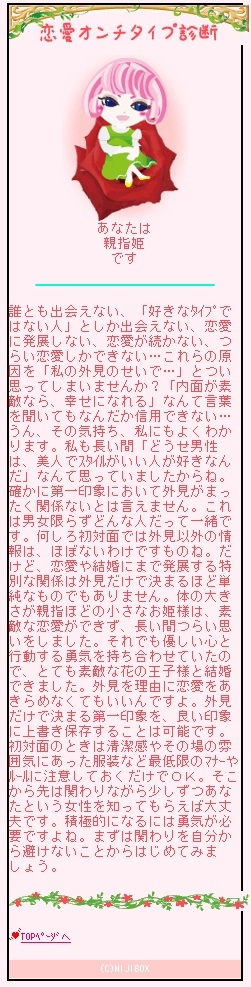 恋愛オンチタイプ診断
あなたは
親指姫
です
誰とも出会えない、「好きなﾀｲﾌﾟで
はない人」としか出会えない、恋愛
に発展しない、恋愛が続かない、つ
らい恋愛しかできない…これらの原
因を「私の外見のせいで…」とつい
思ってしまいませんか？「内面が素
敵なら、幸せになれる」なんて言葉
を聞いてもなんだか信用できない…
うん、その気持ち、私にもよくわか
ります。私も長い間「どうせ男性
は、美人でｽﾀｲﾙがいい人が好きなん
だ」なんて思っていましたからね。
確かに第一印象において外見がまっ
たく関係ないとは言えません。これ
は男女限らずどんな人だって一緒で
す。何しろ初対面では外見以外の情
報は、ほぼないわけですものね。だ
けど、恋愛や結婚にまで発展する特
別な関係は外見だけで決まるほど単
純なものでもありません。体の大き
さが親指ほどの小さなお姫様は、素
敵な恋愛ができず、長い間つらい思
いをしました。それでも優しい心と
行動する勇気を持ち合わせていたの
で、とても素敵な花の王子様と結婚
できました。外見を理由に恋愛をあ
きらめなくてもいいんですよ。外見
だけで決まる第一印象を、良い印象
に上書き保存することは可能です。
初対面のときは清潔感やその場の雰
囲気にあった服装など最低限のﾏﾅｰや
ﾙｰﾙに注意しておくだけでＯＫ。そこ
から先は関わりながら少しずつあな
たという女性を知ってもらえば大丈
夫です。積極的になるには勇気が必
要ですよね。まずは関わりを自分か
ら避けないことからはじめてみま
しょう。
TOPﾍﾟｰｼﾞへ
(C)NIJIBOX